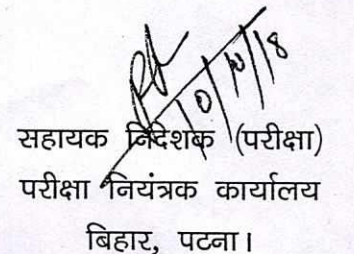 सहायक निदेशक (परीक्षा)
परीक्षा नियंत्रक कार्यालय
बिहार, पटना।